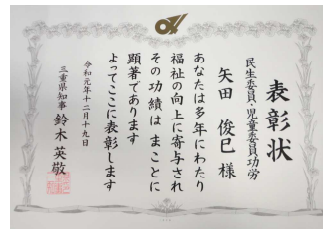 表彰状
民生委員、児童委員功労
矢田 俊巳 様
あなたは多年にわたり
福祉の向上に寄与され
その功績はまことに
顕著であります
よってここに表彰します
令和元年十二月十九日
三重県知事 鈴木英敬